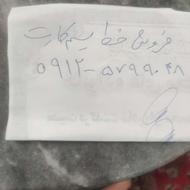 فروش خط سیمکارت
۰۹۱۲-۵۷۹۹۰۴۸